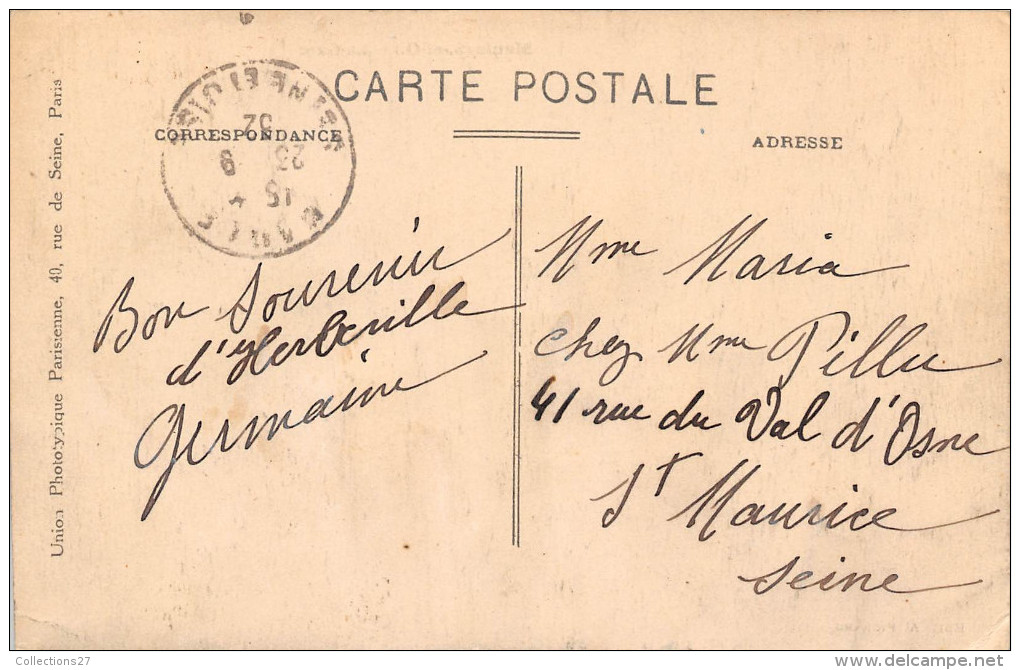 CARTE POSTALE
CORRESPONDANCE
ADRESSE
SEINE ET OISE
15 *
23 9
32
Bon Souvenir
d'Herbeville
Germaine
Mme Maria
chez Mme Pillu
41 rue du Val d'Osne
St Maurice
Seine
Union Phototypique Parisienne, 40, rue de Seine, Paris
Collections27
www.delcampe.net